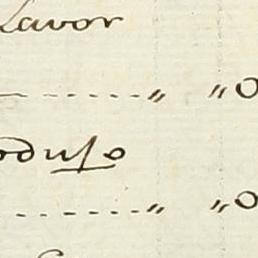 Lavor
------„ „0
oduſo
------„ „0